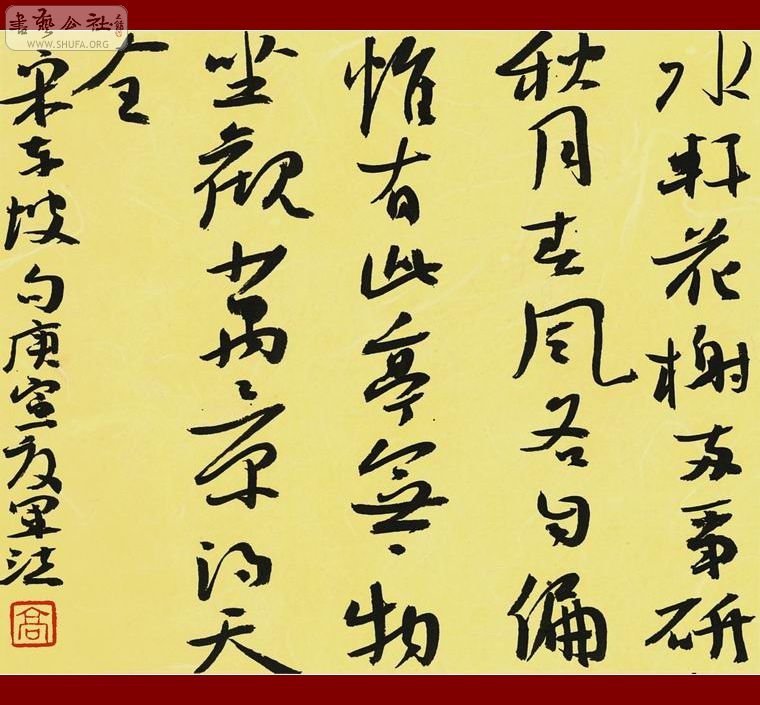 書藝公社
WWW.SHUFA.ORG
水軒花榭两爭研
秋月春风各自偏
惟有此亭無一物
坐觀萬景得天
全
宋东坡句庚寅友军法
高